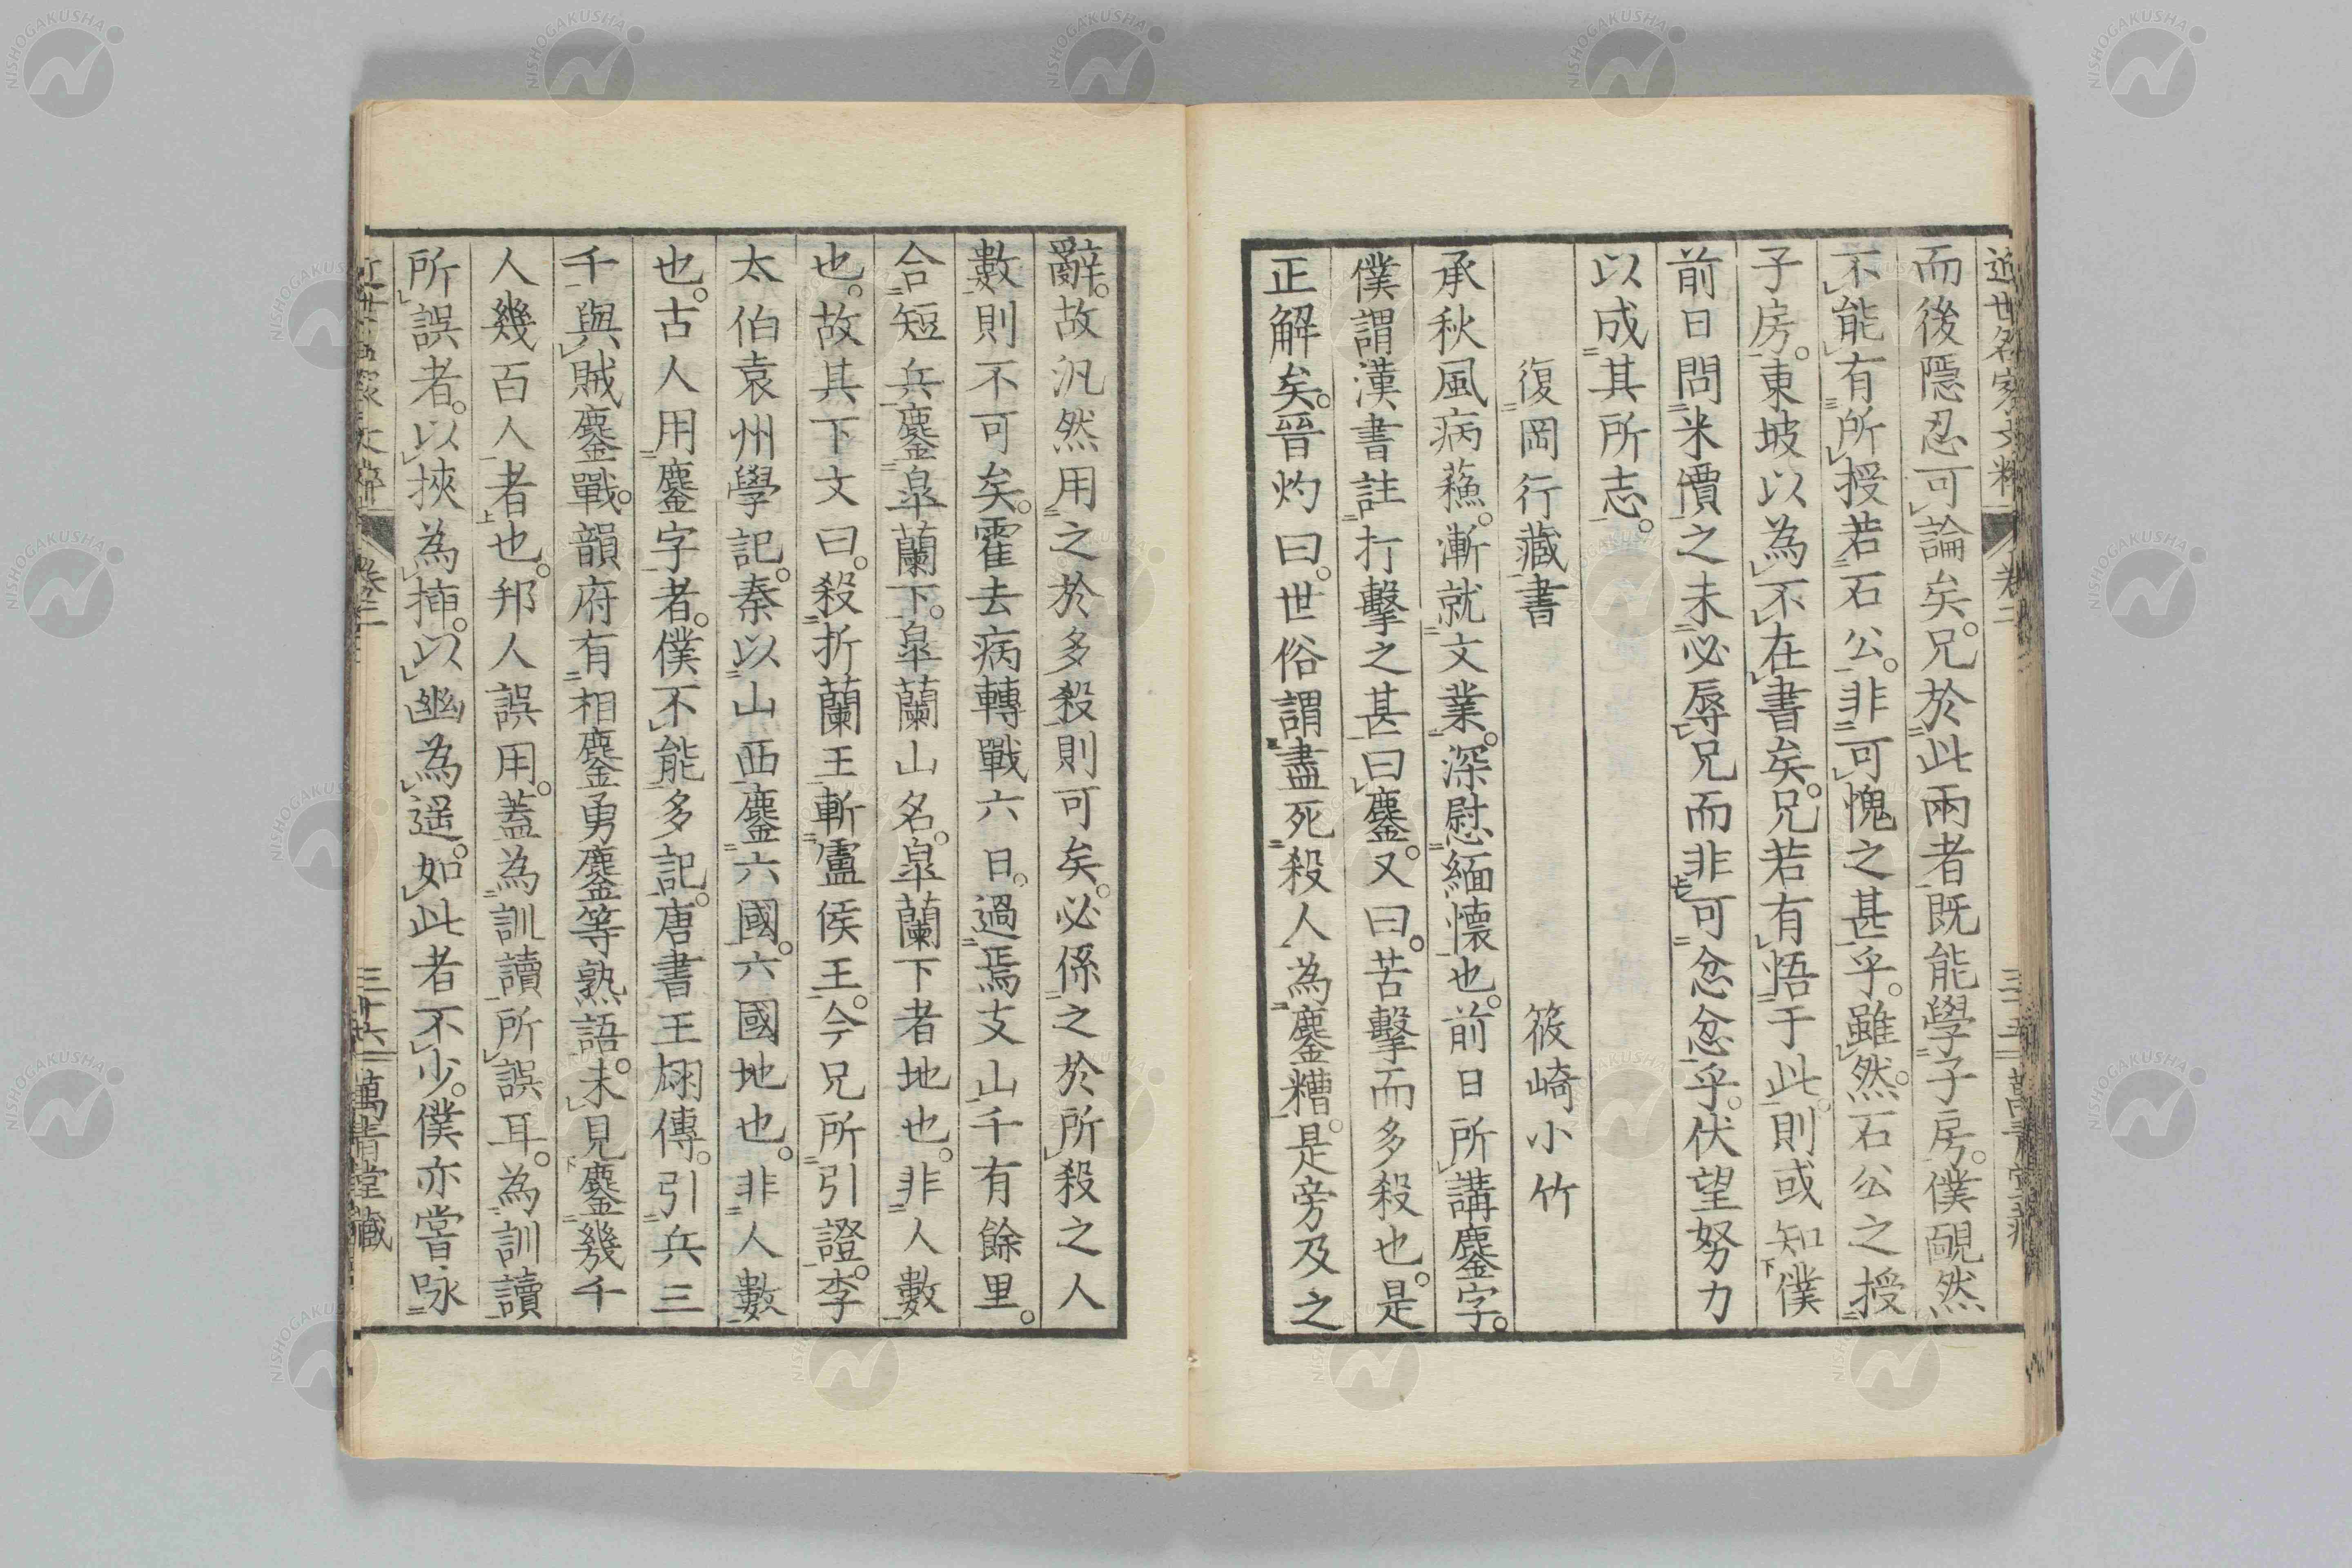 近世名家文粹 卷二 三十五 萬青堂藏
而後隱忍可論矣。兄於此兩者既能學子房。僕靦然
不能有所授若石公。非可愧之甚乎。雖然。石公之授
子房。東坡以為不在書矣。兄若有悟于此。則或知僕
前日問米價之未必辱兄而非可忿忿乎。伏望努力
以成其所志。
復岡行藏書 筱崎小竹
承秋風病蘓。漸就文業。深慰緬懷也。前日所講鏖字。
僕謂漢書註打擊之甚曰鏖。又曰。苦擊而多殺也。是
正解矣。晉灼曰。世俗謂盡死殺人為鏖糟。是旁及之
辭。故汎然用之於多殺則可矣。必係之於所殺之人
數則不可矣。霍去病轉戰六日。過焉支山千有餘里。
合短兵鏖皐蘭下。皐蘭山名。皐蘭下者地也。非人數
也。故其下文曰。殺折蘭王斬盧侯王。今兄所引證。李
太伯袁州學記。秦以山西鏖六國。六國地也。非人數
也。古人用鏖字者。僕不能多記。唐書王翃傳。引兵三
千與賊鏖戰。韻府有相鏖勇鏖等熟語。未見鏖幾千
人幾百人者也。邦人誤用。蓋為訓讀所誤耳。為訓讀
所誤者。以挾為揷。以幽為遥。如此者不少。僕亦嘗咏
近世名家文粹 卷二 三十六 萬青堂藏
NISHOGAKUSHA